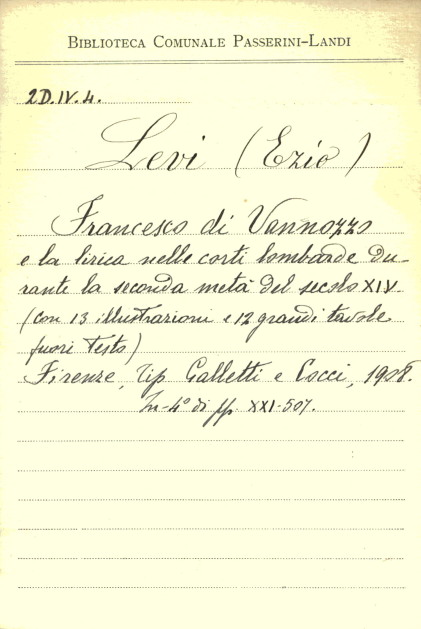 BIBLIOTECA COMUNALE PASSERINI-LANDI
2D.IV.4.
Levi (Ezio)
Francesco di Vannozzo
e la lirica nelle corti lombarde du-
rante la seconda metà del secolo XIV.
(con 13 illustrazioni e 12 grandi tavole
fuori testo)
Firenze, Tip. Galletti e Cocci, 1908.
In-4° di pp. XXI-507.